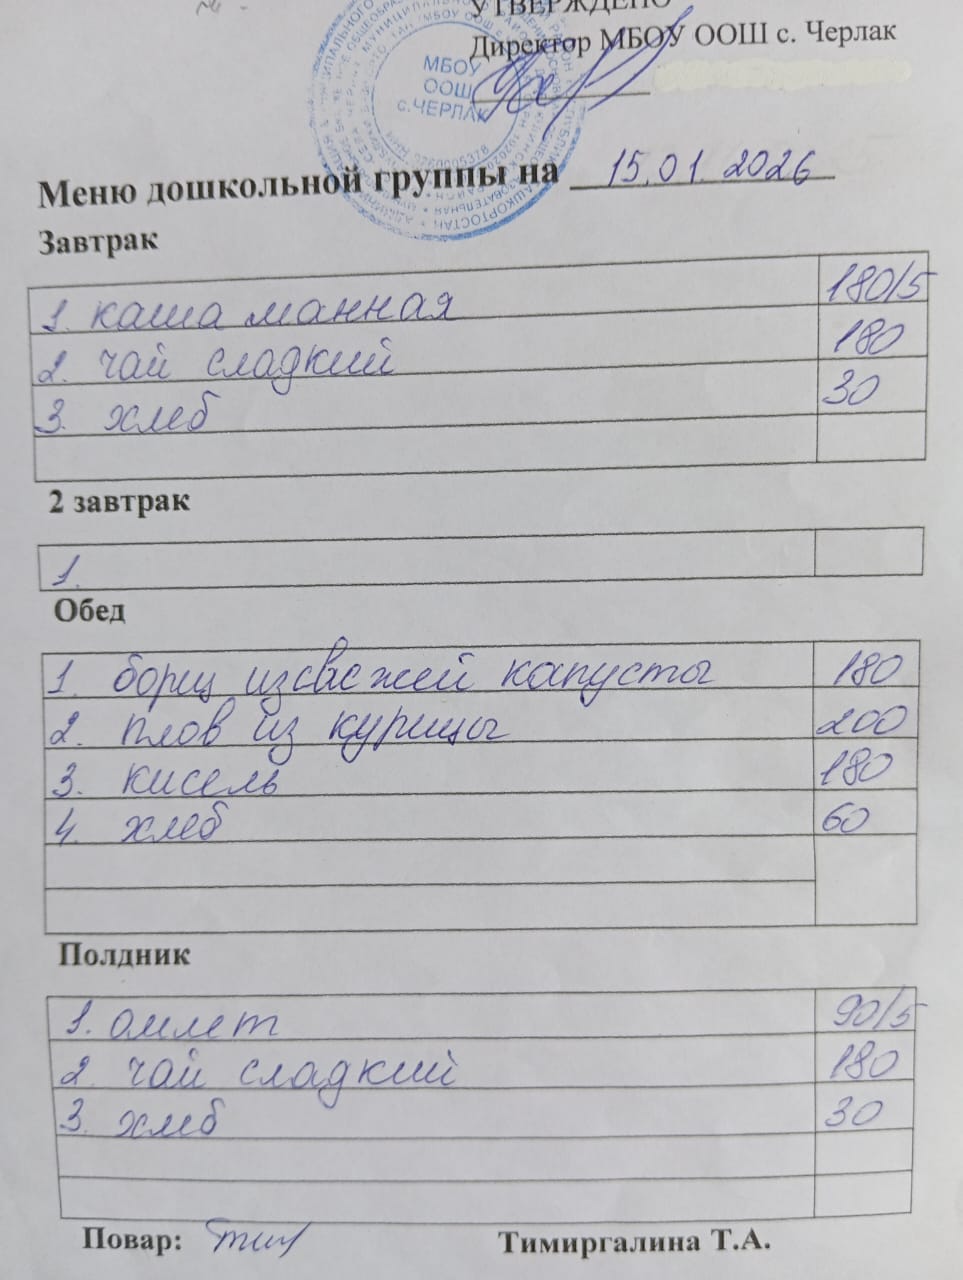 УТВЕРЖДЕНО
Директор МБОУ ООШ с. Черлак
МБОУ
ООШ
с.ЧЕРЛАК
Меню дошкольной группы на 15.01.2026
Завтрак
1. каша манная 180/5
2. чай сладкий 180
3. хлеб 30
2 завтрак
1.
Обед
1. борщ изсвежей капусты 180
2. плов из курицы 200
3. кисель 180
4. хлеб 60
Полдник
1. омлет 90/5
2 чай сладкий 180
3. хлеб 30
Повар: Тимиргалина Т.А.